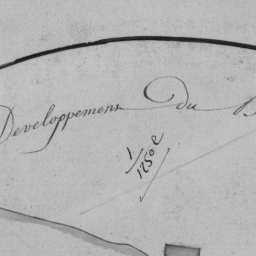 Developpement Du
1/1250e